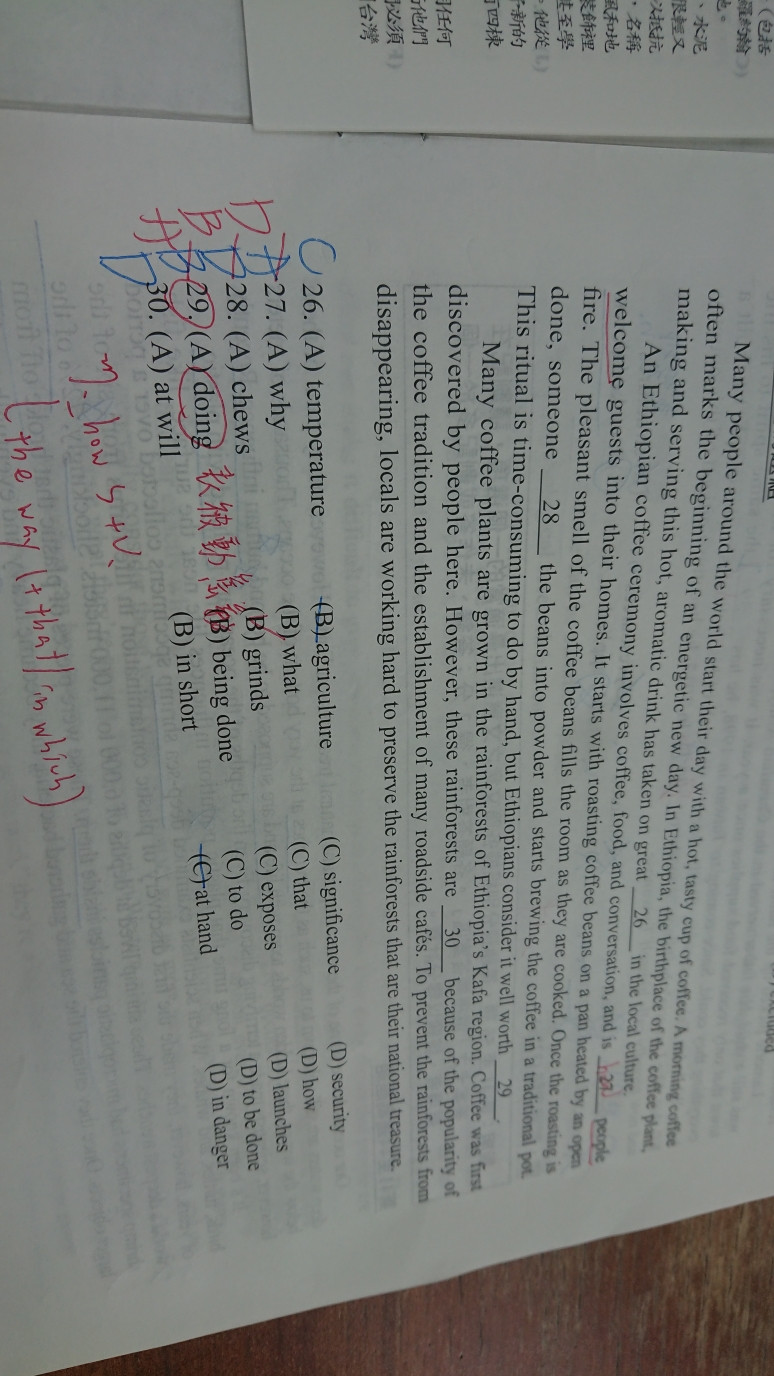 （包括
、水泥
很輕又
以抵抗
、名稱
風和地
裝飾裡
甚至學
。他從
新的
四棟
任何
他們
必須
台灣
Many people around the world start their day with a hot, tasty cup of coffee. A morning coffee
often marks the beginning of an energetic new day. In Ethiopia, the birthplace of the coffee plant,
making and serving this hot, aromatic drink has taken on great 26 in the local culture.
An Ethiopian coffee ceremony involves coffee, food, and conversation, and is 27 people
welcome guests into their homes. It starts with roasting coffee beans on a pan heated by an open
fire. The pleasant smell of the coffee beans fills the room as they are cooked. Once the roasting is
done, someone 28 the beans into powder and starts brewing the coffee in a traditional pot.
This ritual is time-consuming to do by hand, but Ethiopians consider it well worth 29 .
Many coffee plants are grown in the rainforests of Ethiopia's Kafa region. Coffee was first
discovered by people here. However, these rainforests are 30 because of the popularity of
the coffee tradition and the establishment of many roadside cafés. To prevent the rainforests from
disappearing, locals are working hard to preserve the rainforests that are their national treasure.
C 26. (A) temperature (B) agriculture (C) significance (D) security
D A 27. (A) why (B) what (C) that (D) how
B D 28. (A) chews (B) grinds (C) exposes (D) launches
A B 29. (A) doing (B) being done (C) to do (D) to be done
D 30. (A) at will (B) in short (C) at hand (D) in danger
how S+V.
the way (+that / in which)